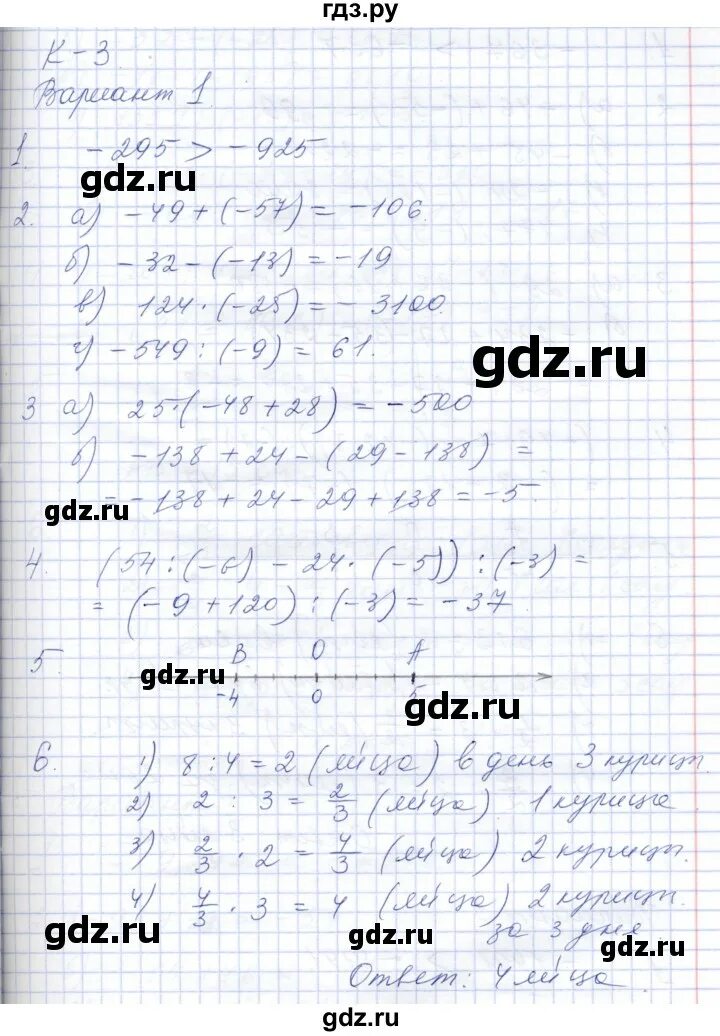 гдз.ру
К-3
Вариант 1.
1. -295 > -925
gdz.ru
2. а) -49 + (-57) = -106.
б) -32 - (-13) = -19
в) 124 · (-25) = -3100.
г) -549 : (-9) = 61.
gdz.ru
3 а) 25·(-48 + 28) = -500
б) -138 + 24 - (29 - 138) =
= -138 + 24 - 29 + 138 = -5.
gdz.ru
4. (54 : (-6) - 24 · (-5)) : (-3) =
= (-9 + 120) : (-3) = -37
5. B O A
gdz.ru
-4 0 5
gdz.ru
6. 1) 8 : 4 = 2 (яйца) в день 3 куриц.
2) 2 : 3 = 2/3 (яйца) 1 курица
3) 2/3 · 2 = 4/3 (яйца) 2 курицы.
4) 4/3 · 3 = 4 (яйца) 2 курицы.
за 3 дня
gdz.ru gdz.ru gdz.ru
Ответ: 4 яйца.
gdz.ru